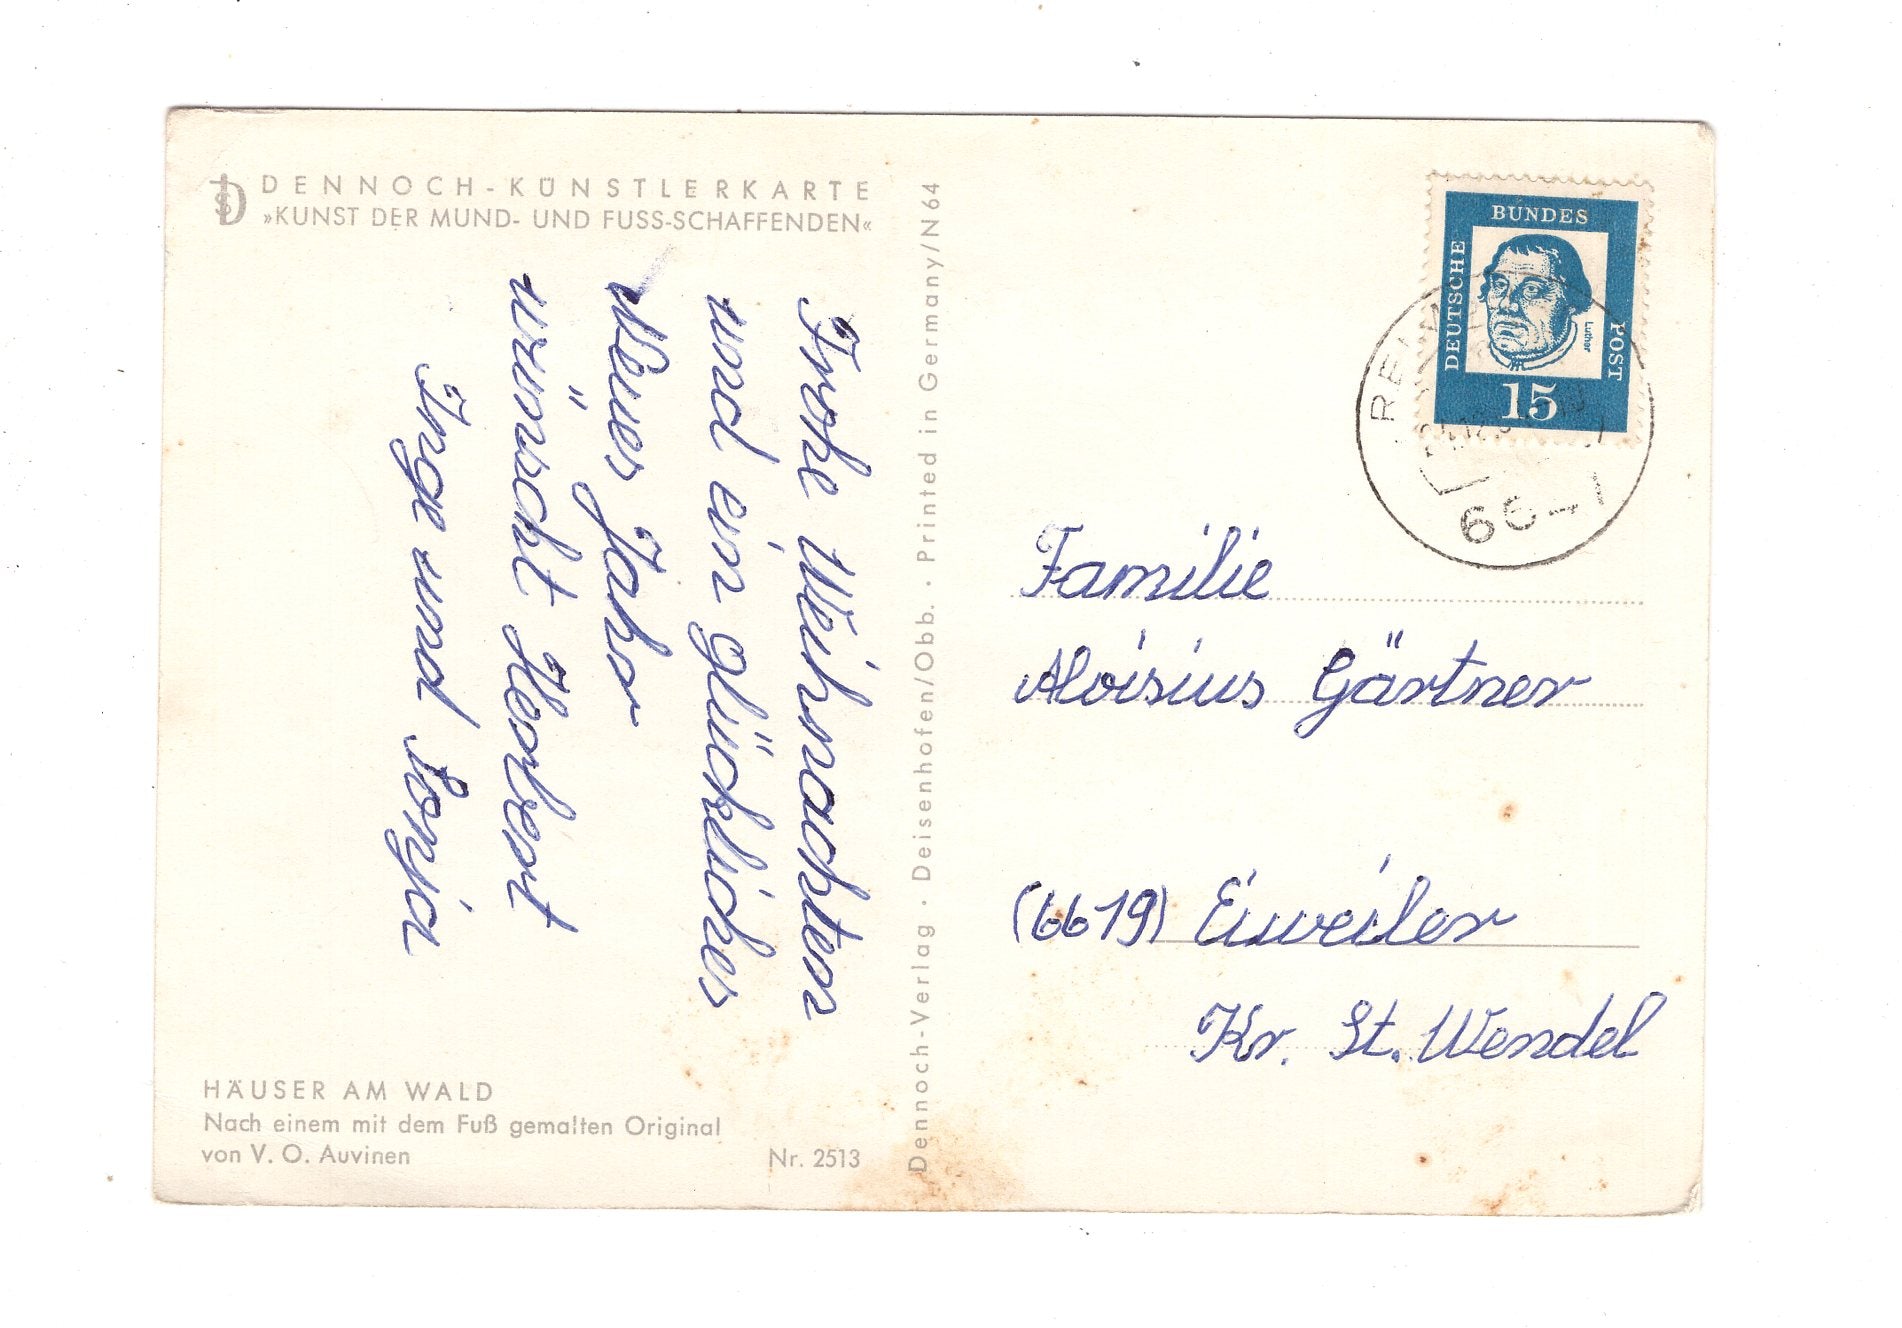 DENNOCH-KÜNSTLERKARTE
»KUNST DER MUND- UND FUSS-SCHAFFENDEN«
Frohe Weihnachten
und ein glückliches
Neues Jahr
wünscht Herbert
Inge und Sonja
HÄUSER AM WALD
Nach einem mit dem Fuß gemalten Original
von V. O. Auvinen
Nr. 2513
Dennoch-Verlag · Deisenhofen/Obb. · Printed in Germany/N 64
DEUTSCHE
BUNDES
POST
Luther
15
66
Familie
Aloisius Gärtner
(6619) Eiweiler
Kr. St. Wendel